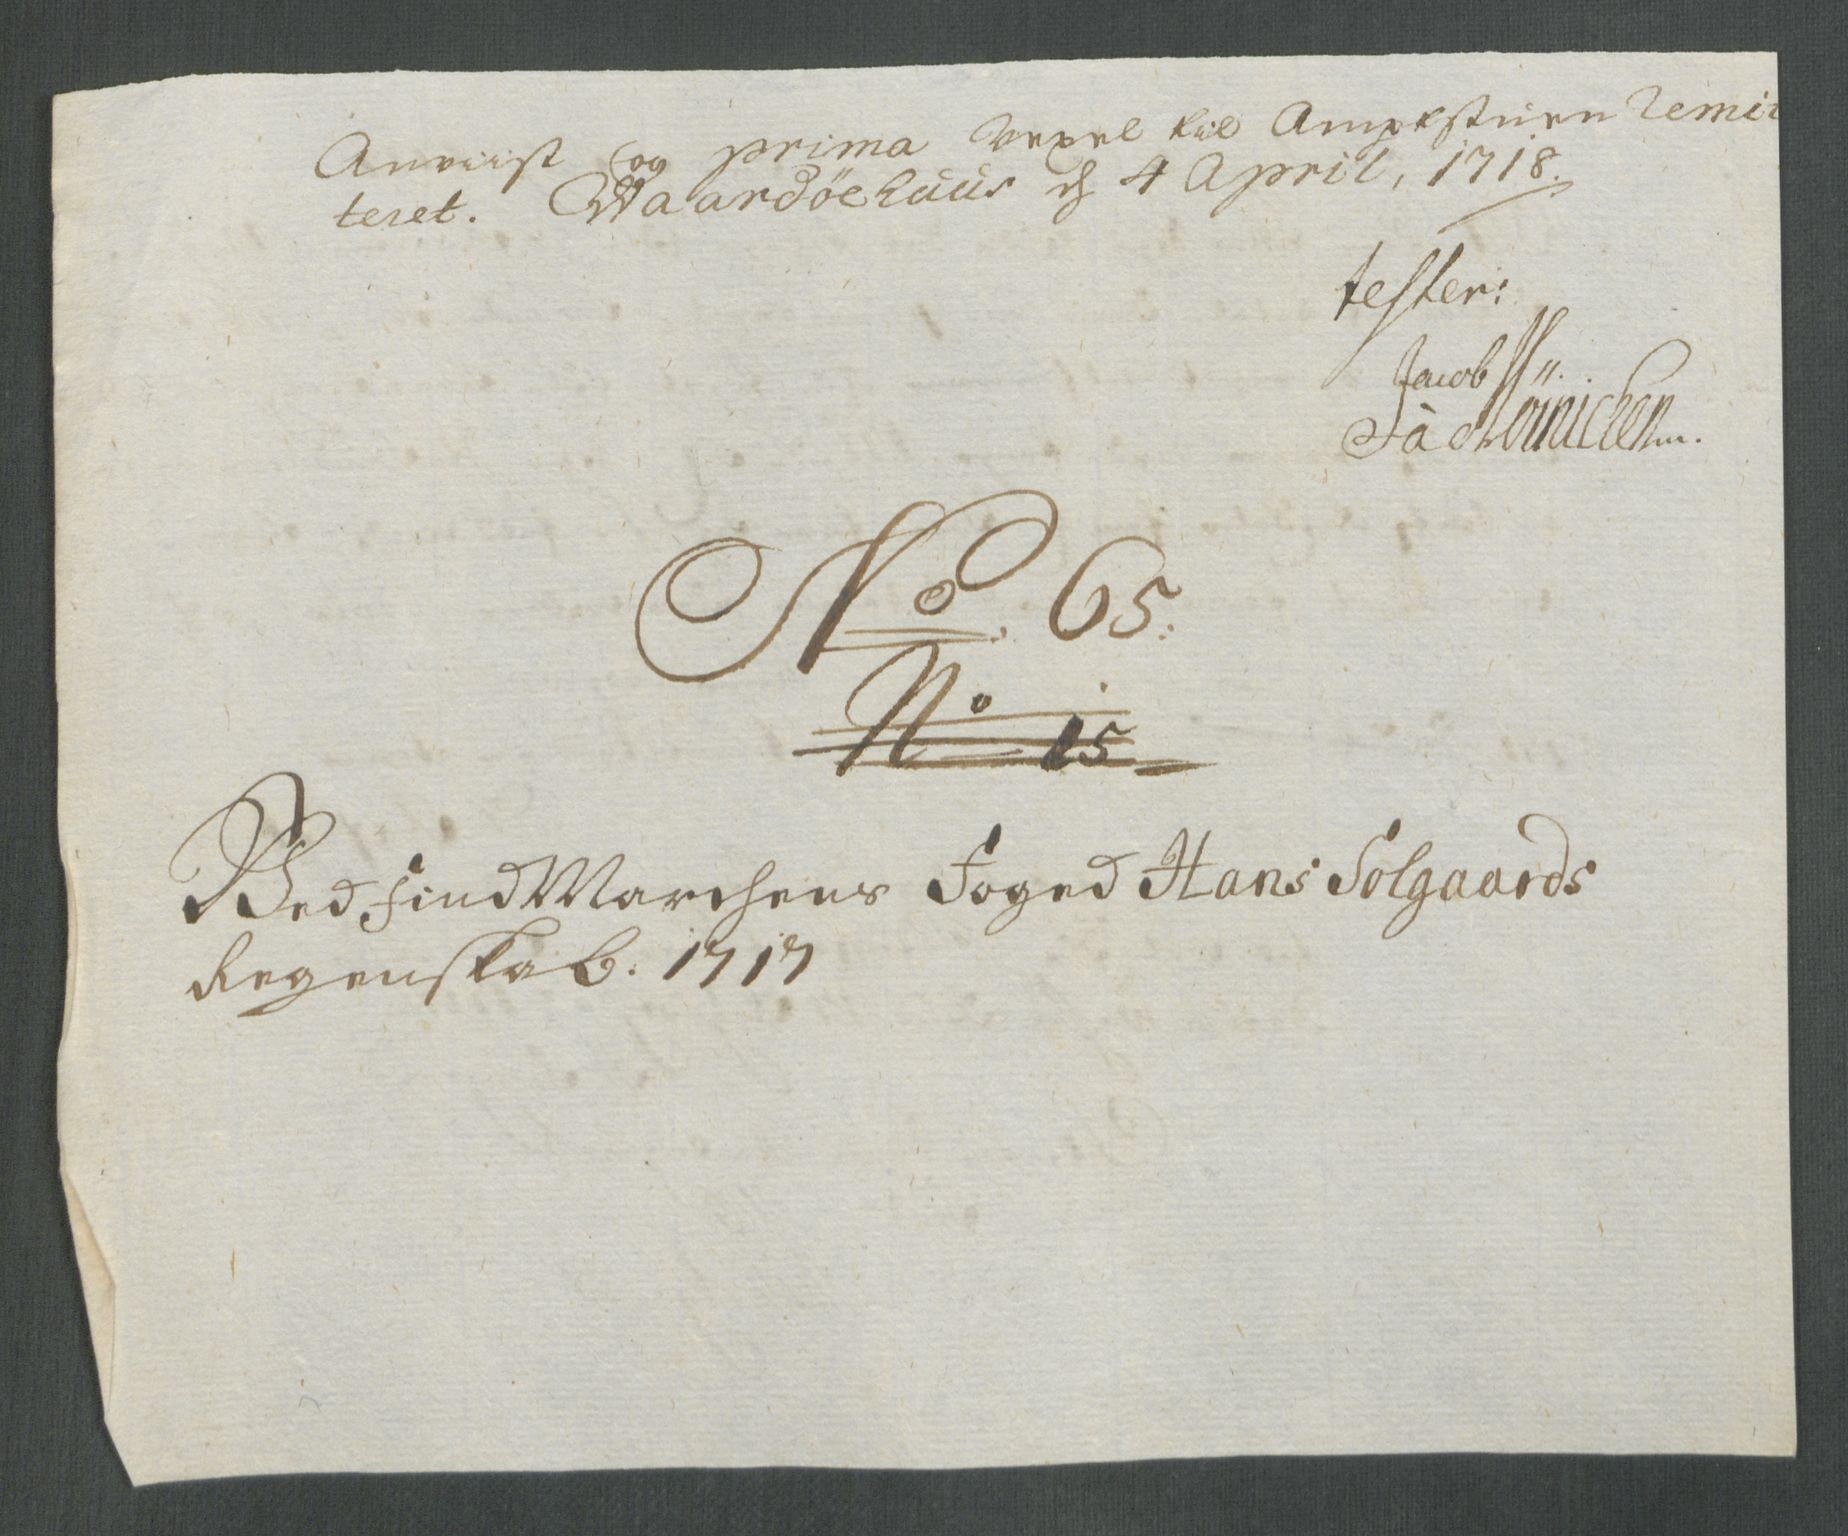 Anviist og prima Vexel til Amptstuen Remit
teret. Waardöehuus d 4 April, 1718.
tester:
Jacob
No. 65.
No 15
Ved FindMarchens Foged Hans Solgaards
Regenskab. 1717